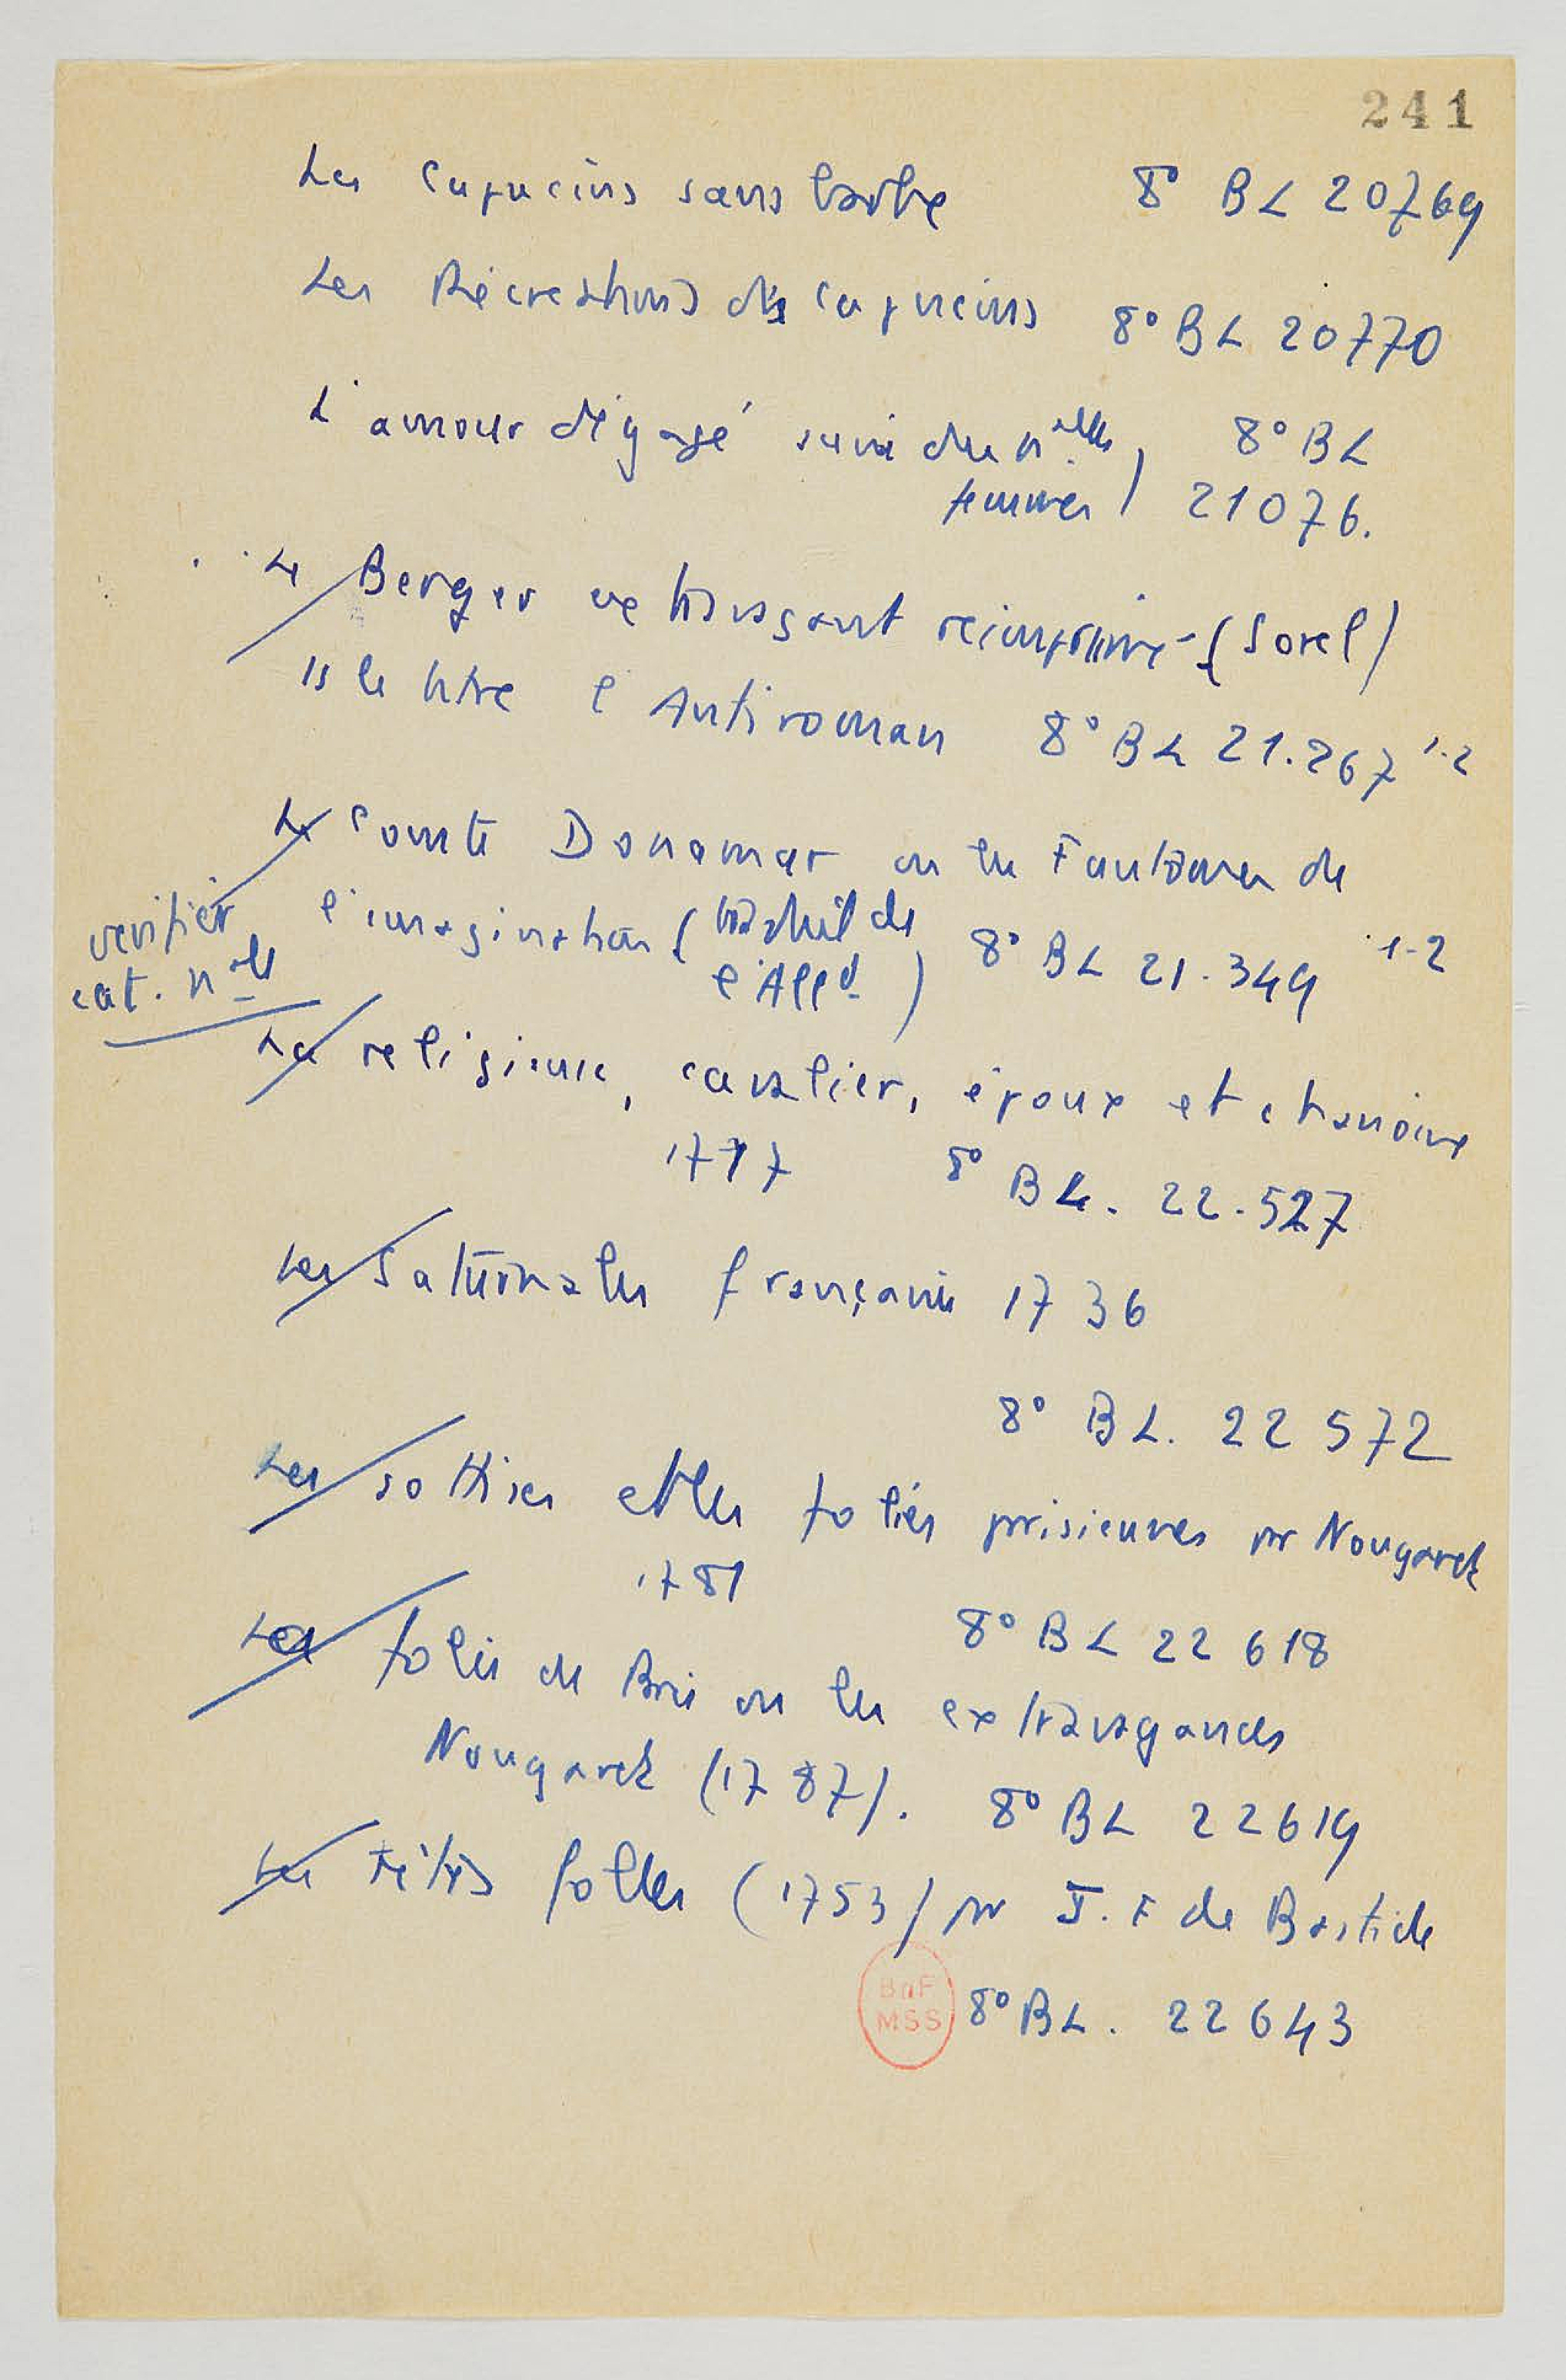 241
Les Capucins sans barbe 8° BL 20769
Les Récreations des capucins 8° BL 20770
L'amour dégagé suivi des nelles 8° BL
femmes) 21076.
Le Berger extravagant reimprimé (Sorel)
ss le titre l'Antiroman 8° BL 21.267 1-2
Le Comte Donamar ou les Fantomes de
verifier l'imagination (traduit de 8° BL 21.349 1-2
cat. nal l'Alld)
La religieuse, cavalier, époux et chanoine
1717 8° BL. 22.527
Les Saturnales françaises 1736
8° BL. 22 572
Les sottises et les folies parisiennes par Nougaret
1781 8° BL 22 618
Les folies de Paris ou les extravagances
Nougaret (1787). 8° BL 22619
Les Têtes folles (1753) par J. F de Bastide
BnF
MSS 8° BL. 22643